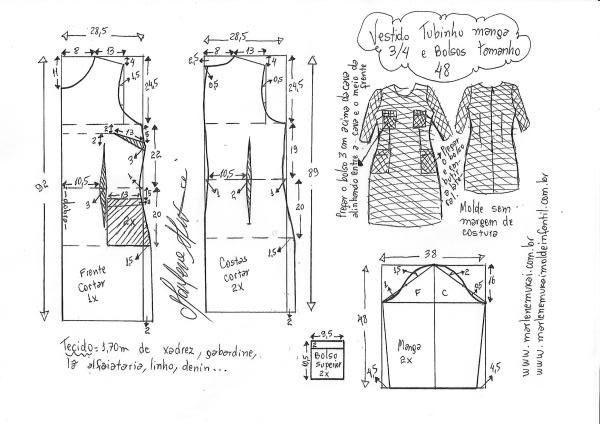 Vestido Tubinho manga
3/4 e Bolsos tamanho
48
28,5
8 13
4
11
1,5
24,5
2
13
5
2
3
22
92
10,5
13
15
dobra
3
2x
20
1,5
Frente
Cortar
1x
2
Marlene Mukai
28,5
8 13
2,5
4
0,5
0,5
24,5
19
89
10,5
1
3
1
20
1,5
Costas
cortar
2x
2
Pregar o bolso 3 cm acima da cava
alinhando entre a cava e o meio da
frente
Molde sem
margem de
costura
38
1,5
2
1
0,5
16
F C
48
Manga
2x
4,5
4,5
9,5
2
10,5
Bolso
superior
2x
Tecido- 1,70m de xadrez, gabardine,
lã alfaiataria, linho, denin...
www.marlenemukai.com.br
www.marlenemukaimoldeinfantil.com.br